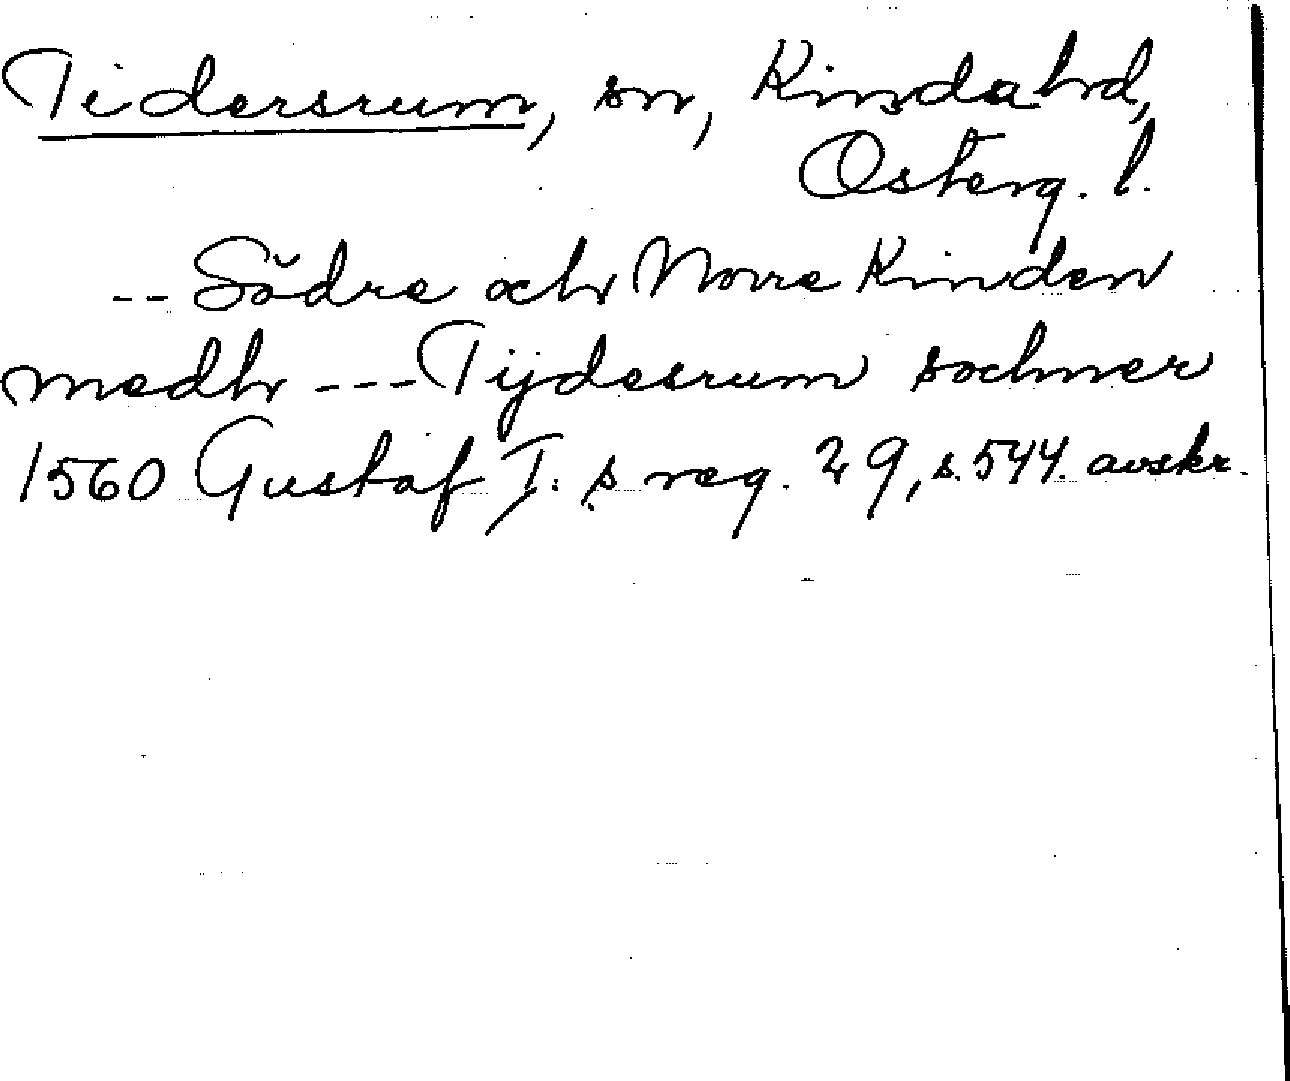 Tidersrum, sn, Kinda hd,
Österg. l.
-- Södre och Norre Kinden
medh --- Tijdesrum sochner
1560 Gustaf I:s reg. 29, s. 544. avskr.